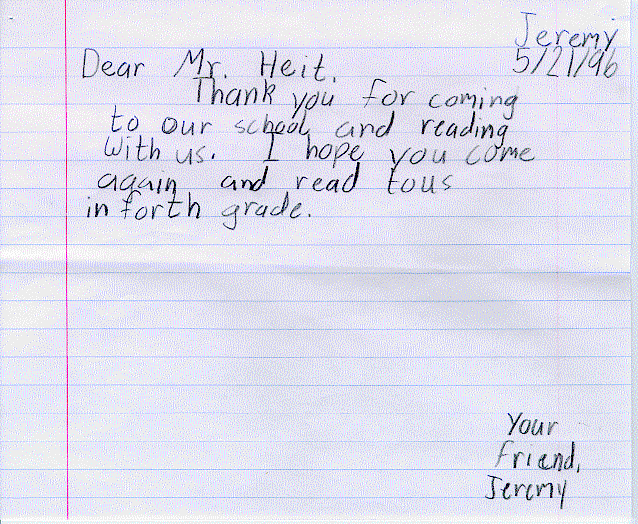 Jeremy
5/21/96
Dear Mr. Heit.
Thank you for coming
to our school and reading
with us. I hope you come
again and read to us
in forth grade.
Your
friend,
Jeremy